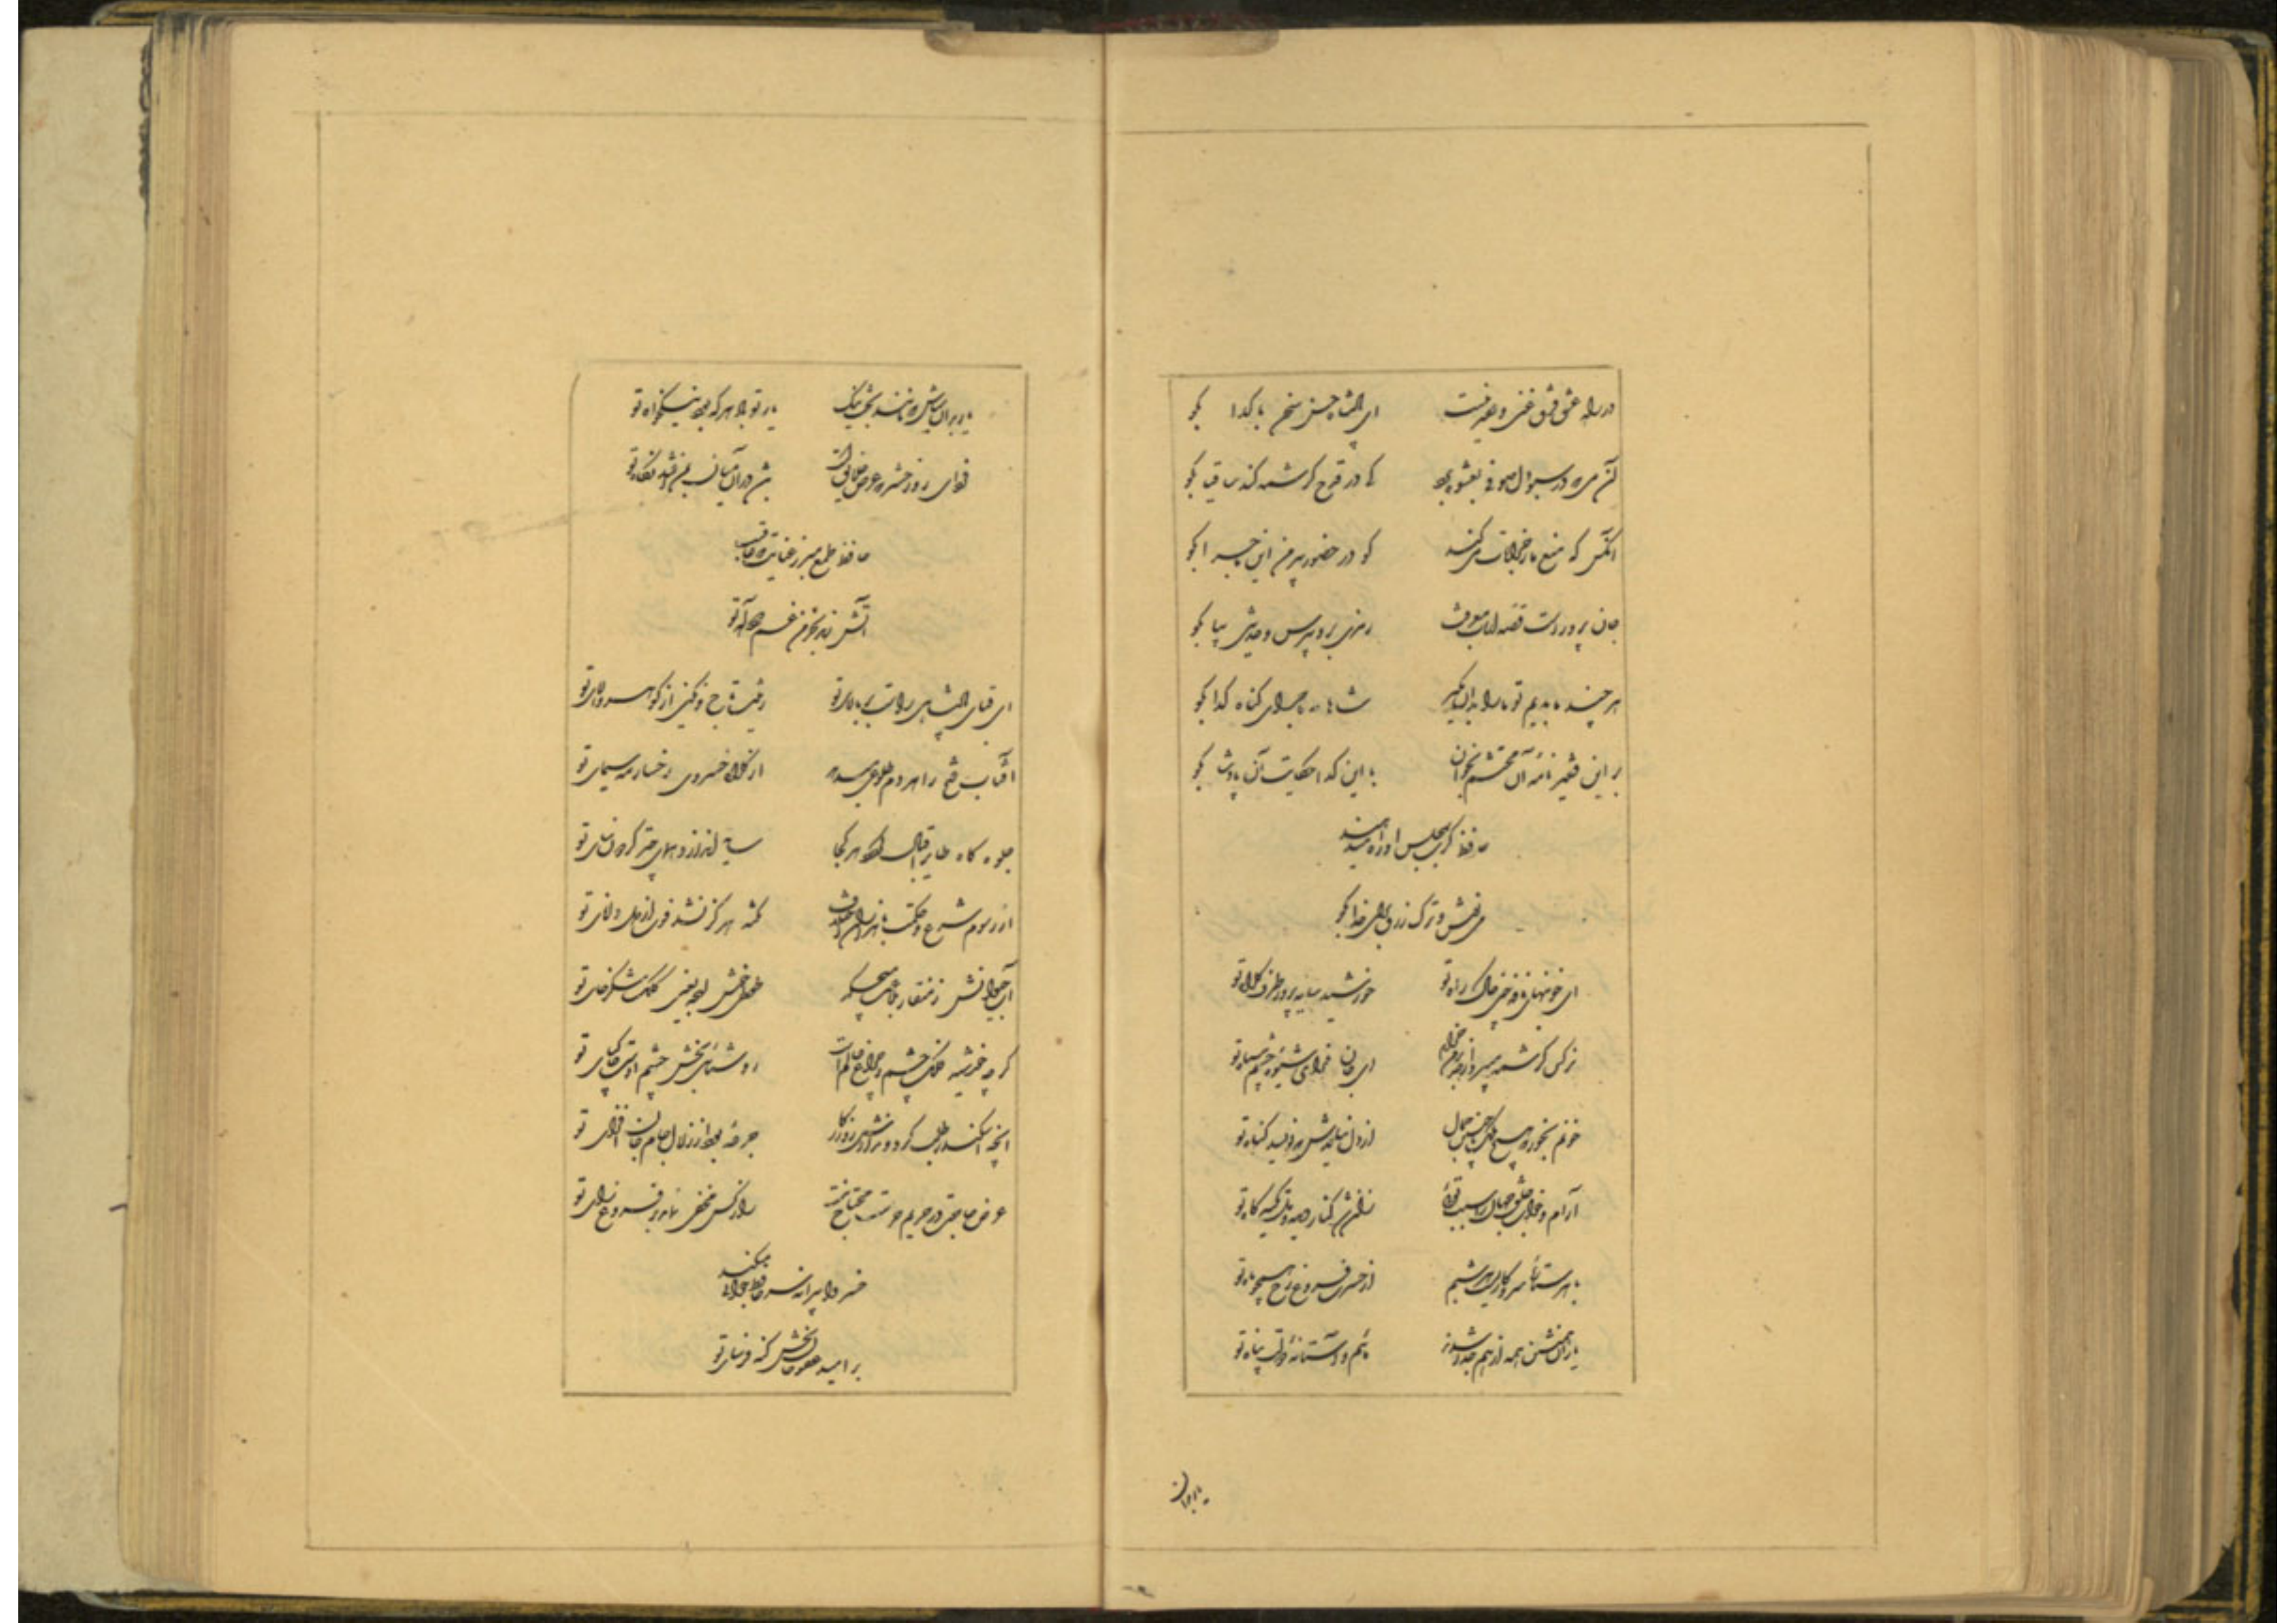 در راه عشق فرق غنی و فقیر نیست ای پادشاه حسن سخن با گدا بگو
آن می که در سبو دل صوفی بعشوه برد کی در قدح کرشمه کند ساقیا بگو
آنکس که منع ما ز خرابات میکند گو در حضور پیر من این ماجرا بگو
جان پرورست قصه ارباب معرفت رمزی برو بپرس و حدیثی بیا بگو
هر چند ما بدیم تو ما را بدان مگیر شاهانه ماجرای گناه گدا بگو
بر این فقیر نامه آن محتشم بخوان با این گدا حکایت آن پادشا بگو
حافظ گرت بمجلس او راه میدهند
می نوش و ترک زرق برای خدا بگو
ای خونبهای نافه چین خاک راه تو خورشید سایه پرور طرف کلاه تو
نرگس کرشمه میبرد از حد برون خرام ای جان فدای شیوه چشم سیاه تو
خونم بخور که هیچ ملک با چنین جمال از دل نیایدش که نویسد گناه تو
آرام و خواب خلق جهان را سبب توئی زان شد کنار دیده و دل تکیه گاه تو
با هر ستارهٔ سر و کارست هر شبم از حسرت فروغ رخ همچو ماه تو
یاران همنشین همه از هم جدا شدند مائیم و آستانه دولت پناه تو
یار بدان
یار بدان مباش که مانند بخت نیک یار تو باد هر که بود نیکخواه تو
فردای روز حشر که عرض خلایق است در آن میان بمن افتد نگاه تو
حافظ طمع مبر ز عنایت که عاقبت
آتش زند بخرمن غم دود آه تو
ای قبای پادشاهی راست بر بالای تو زینت تاج و نگین از گوهر والای تو
آفتاب فتح را هر دم طلوعی میدهد از کلاه خسروی رخسار مه سیمای تو
جلوه گاه طایر اقبال گردد هر کجا سایه اندازد همای چتر گردون سای تو
از رسوم شرع و حکمت با هزاران اختلاف نکته هرگز نشد فوت از دل دانای تو
آب حیوانش ز منقار بلاغت میچکد طوطی خوش لهجه یعنی کلک شکر خای تو
گر چه خورشید فلک چشم و چراغ عالم است روشنائی بخش چشم اوست خاک پای تو
آنچه اسکندر طلب کرد و ندادش روزگار جرعه بود از زلال جام جان افزای تو
عرض حاجت در حریم حرمتت محتاج نیست راز کس مخفی نماند با فروغ رای تو
خسروا پیرانه سر حافظ جوانی میکند
بر امید عفو جان بخش گنه فرسای تو